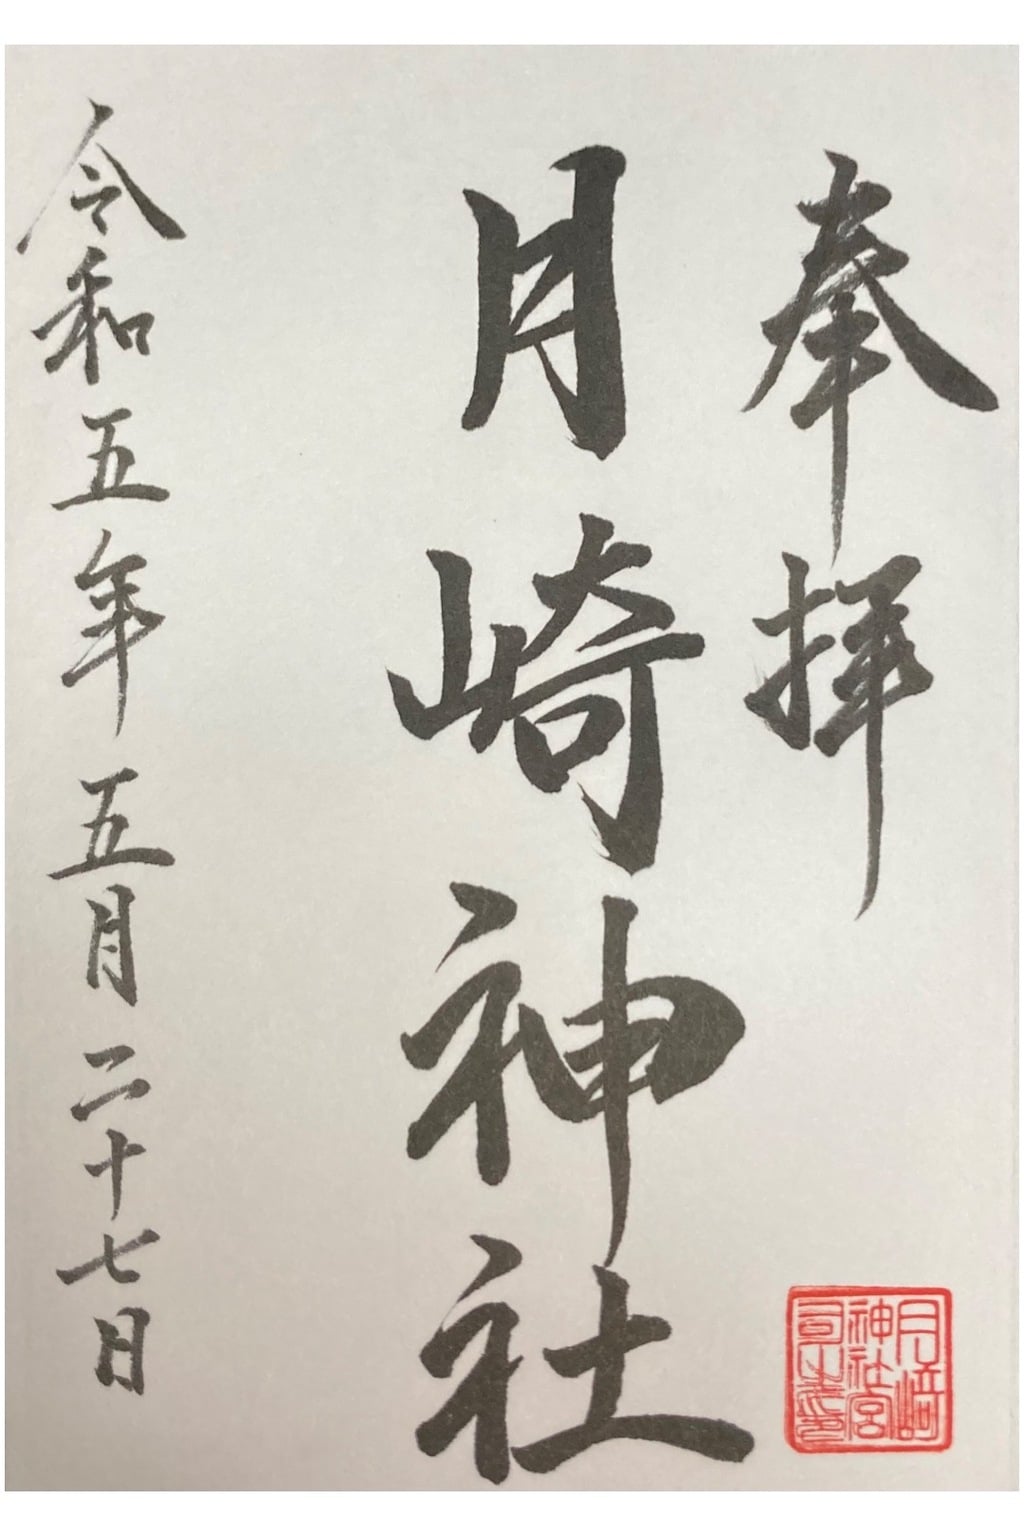 奉拝
月崎神社
令和五年五月二十七日
月崎
神社宮
司之印